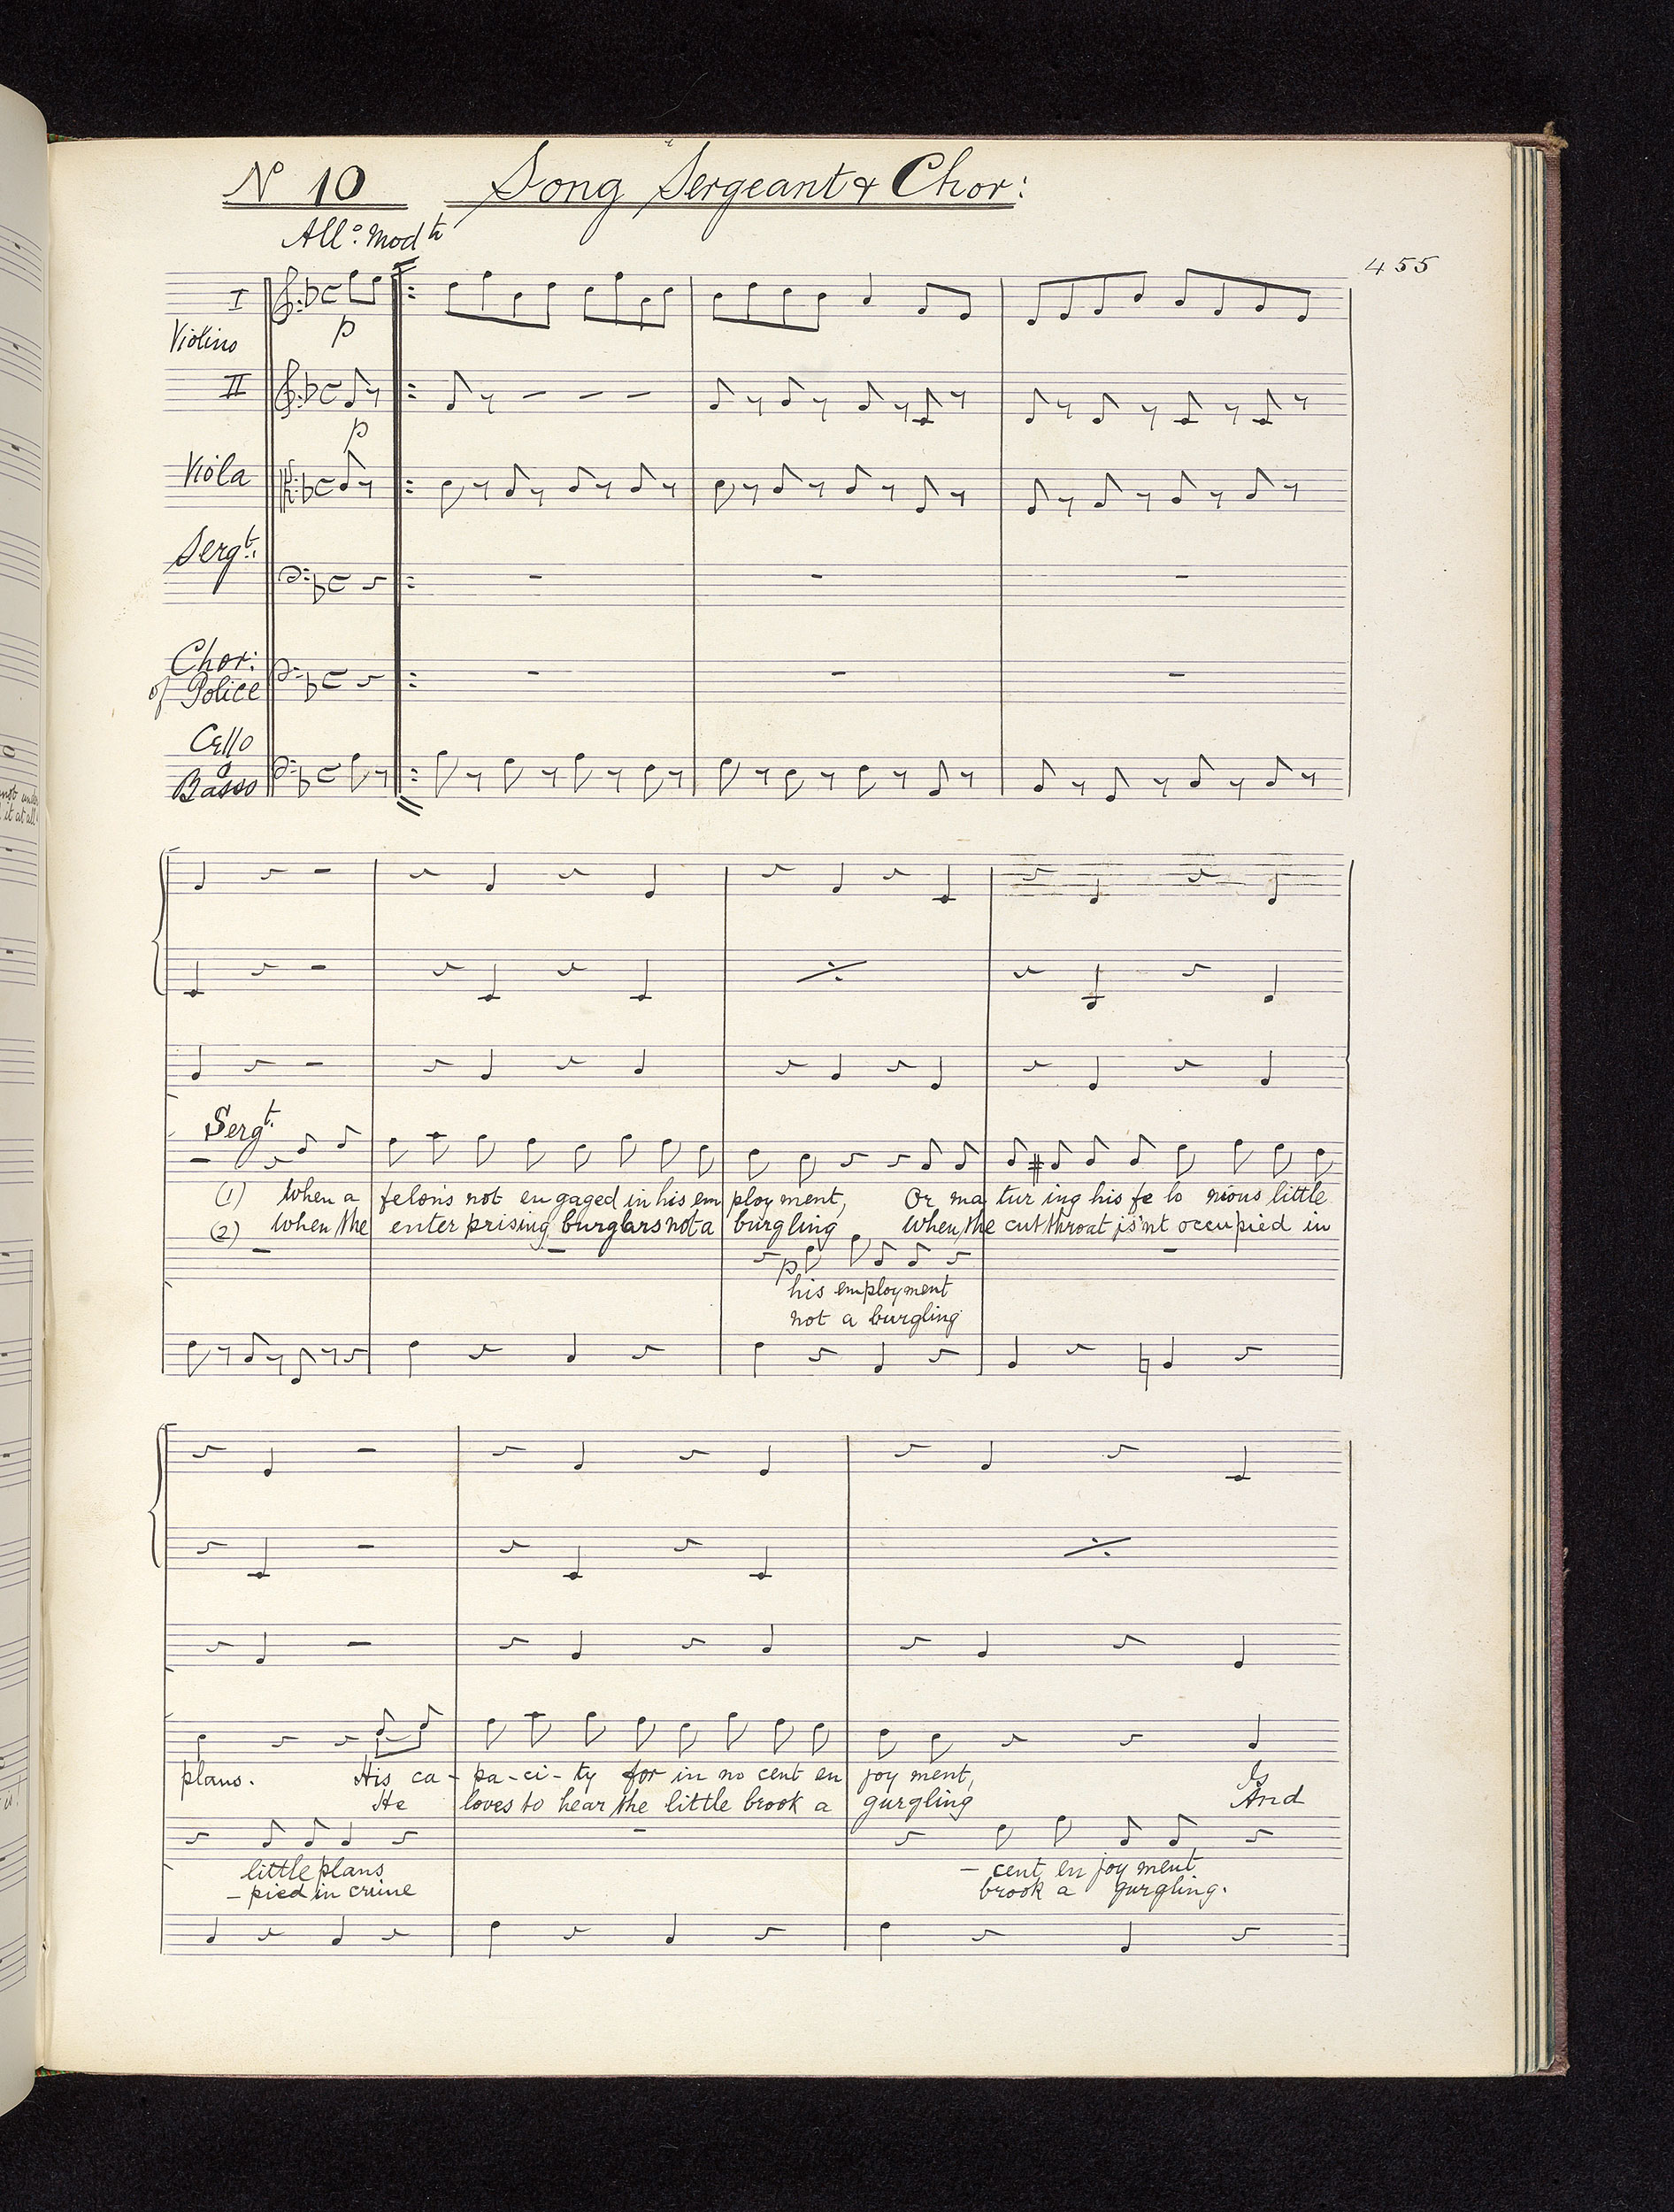 No 10 Song Sergeant & Chor:
Allo. Modto
455
I
Violino
p
II
p
Viola
Sergt.
Chor:
of Police
Cello
&
Basso
Sergt.
(1) When a felon's not en gaged in his em ploy ment, Or ma tur ing his fe lo nious little
(2) When the enter prising burglars not a burgling When the cut throat is'nt occupied in
p
his employment
not a burgling
plans. His ca - pa - ci - ty for in no cent en joy ment, Is
He loves to hear the little brook a gurgling And
little plans - cent en joy ment
- pied in crime brook a gurgling.
not
it at all